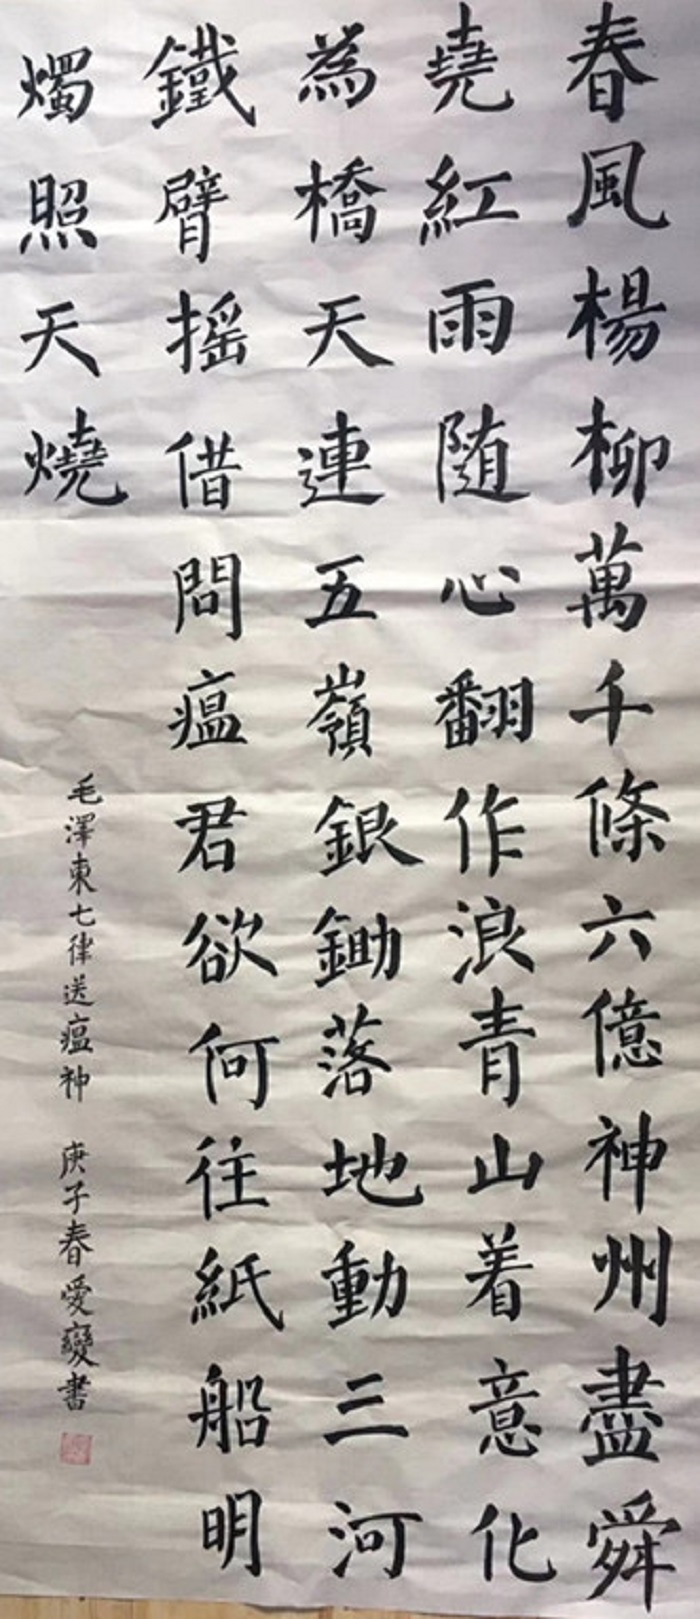 春風楊柳萬千條六億神州盡舜
堯紅雨随心翻作浪青山着意化
為橋天連五嶺銀鋤落地動三河
鐵臂摇借問瘟君欲何往紙船明
燭照天燒
毛澤東七律送瘟神 庚子春愛變書